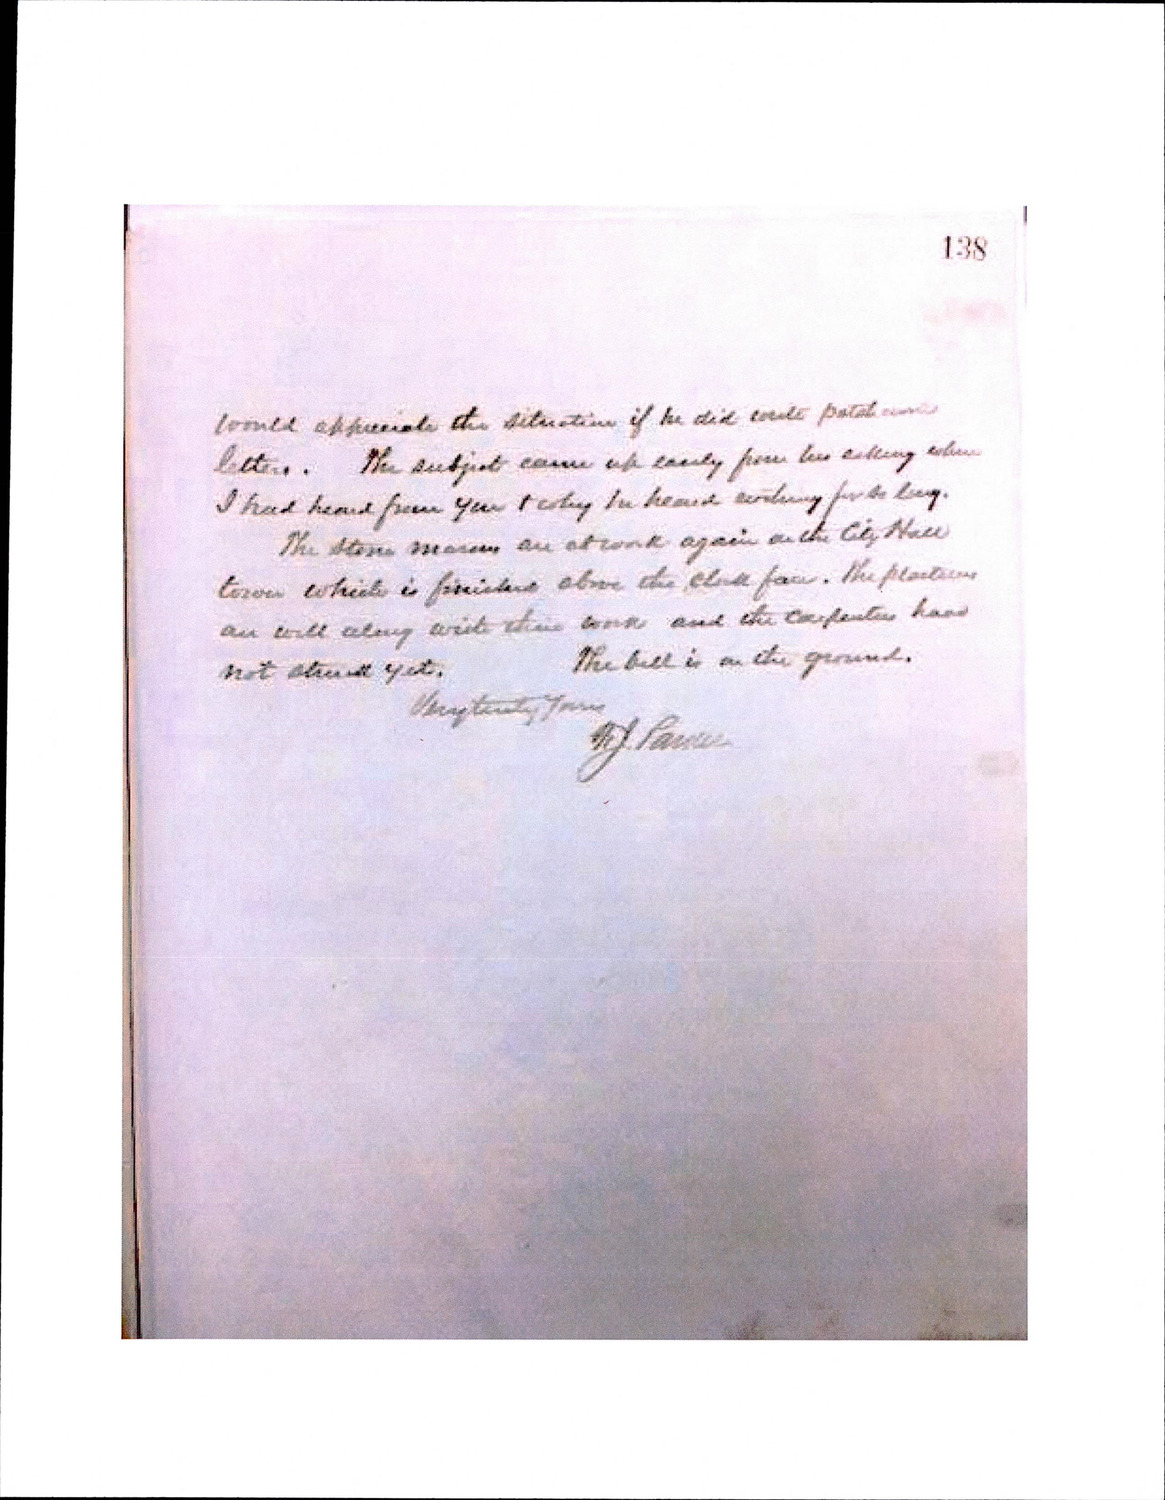 138
would appreciate the situation if he did write
letters. The subject came up easily from his asking when
I had heard from you & why he heard nothing for so long.
The stone masons are at work again on the City Hall
tower which is finished above the clock face. The plasterers
are well along with their work and the carpenters have
not struck yet. The bell is on the ground.
Very truly Yours
J. Parker